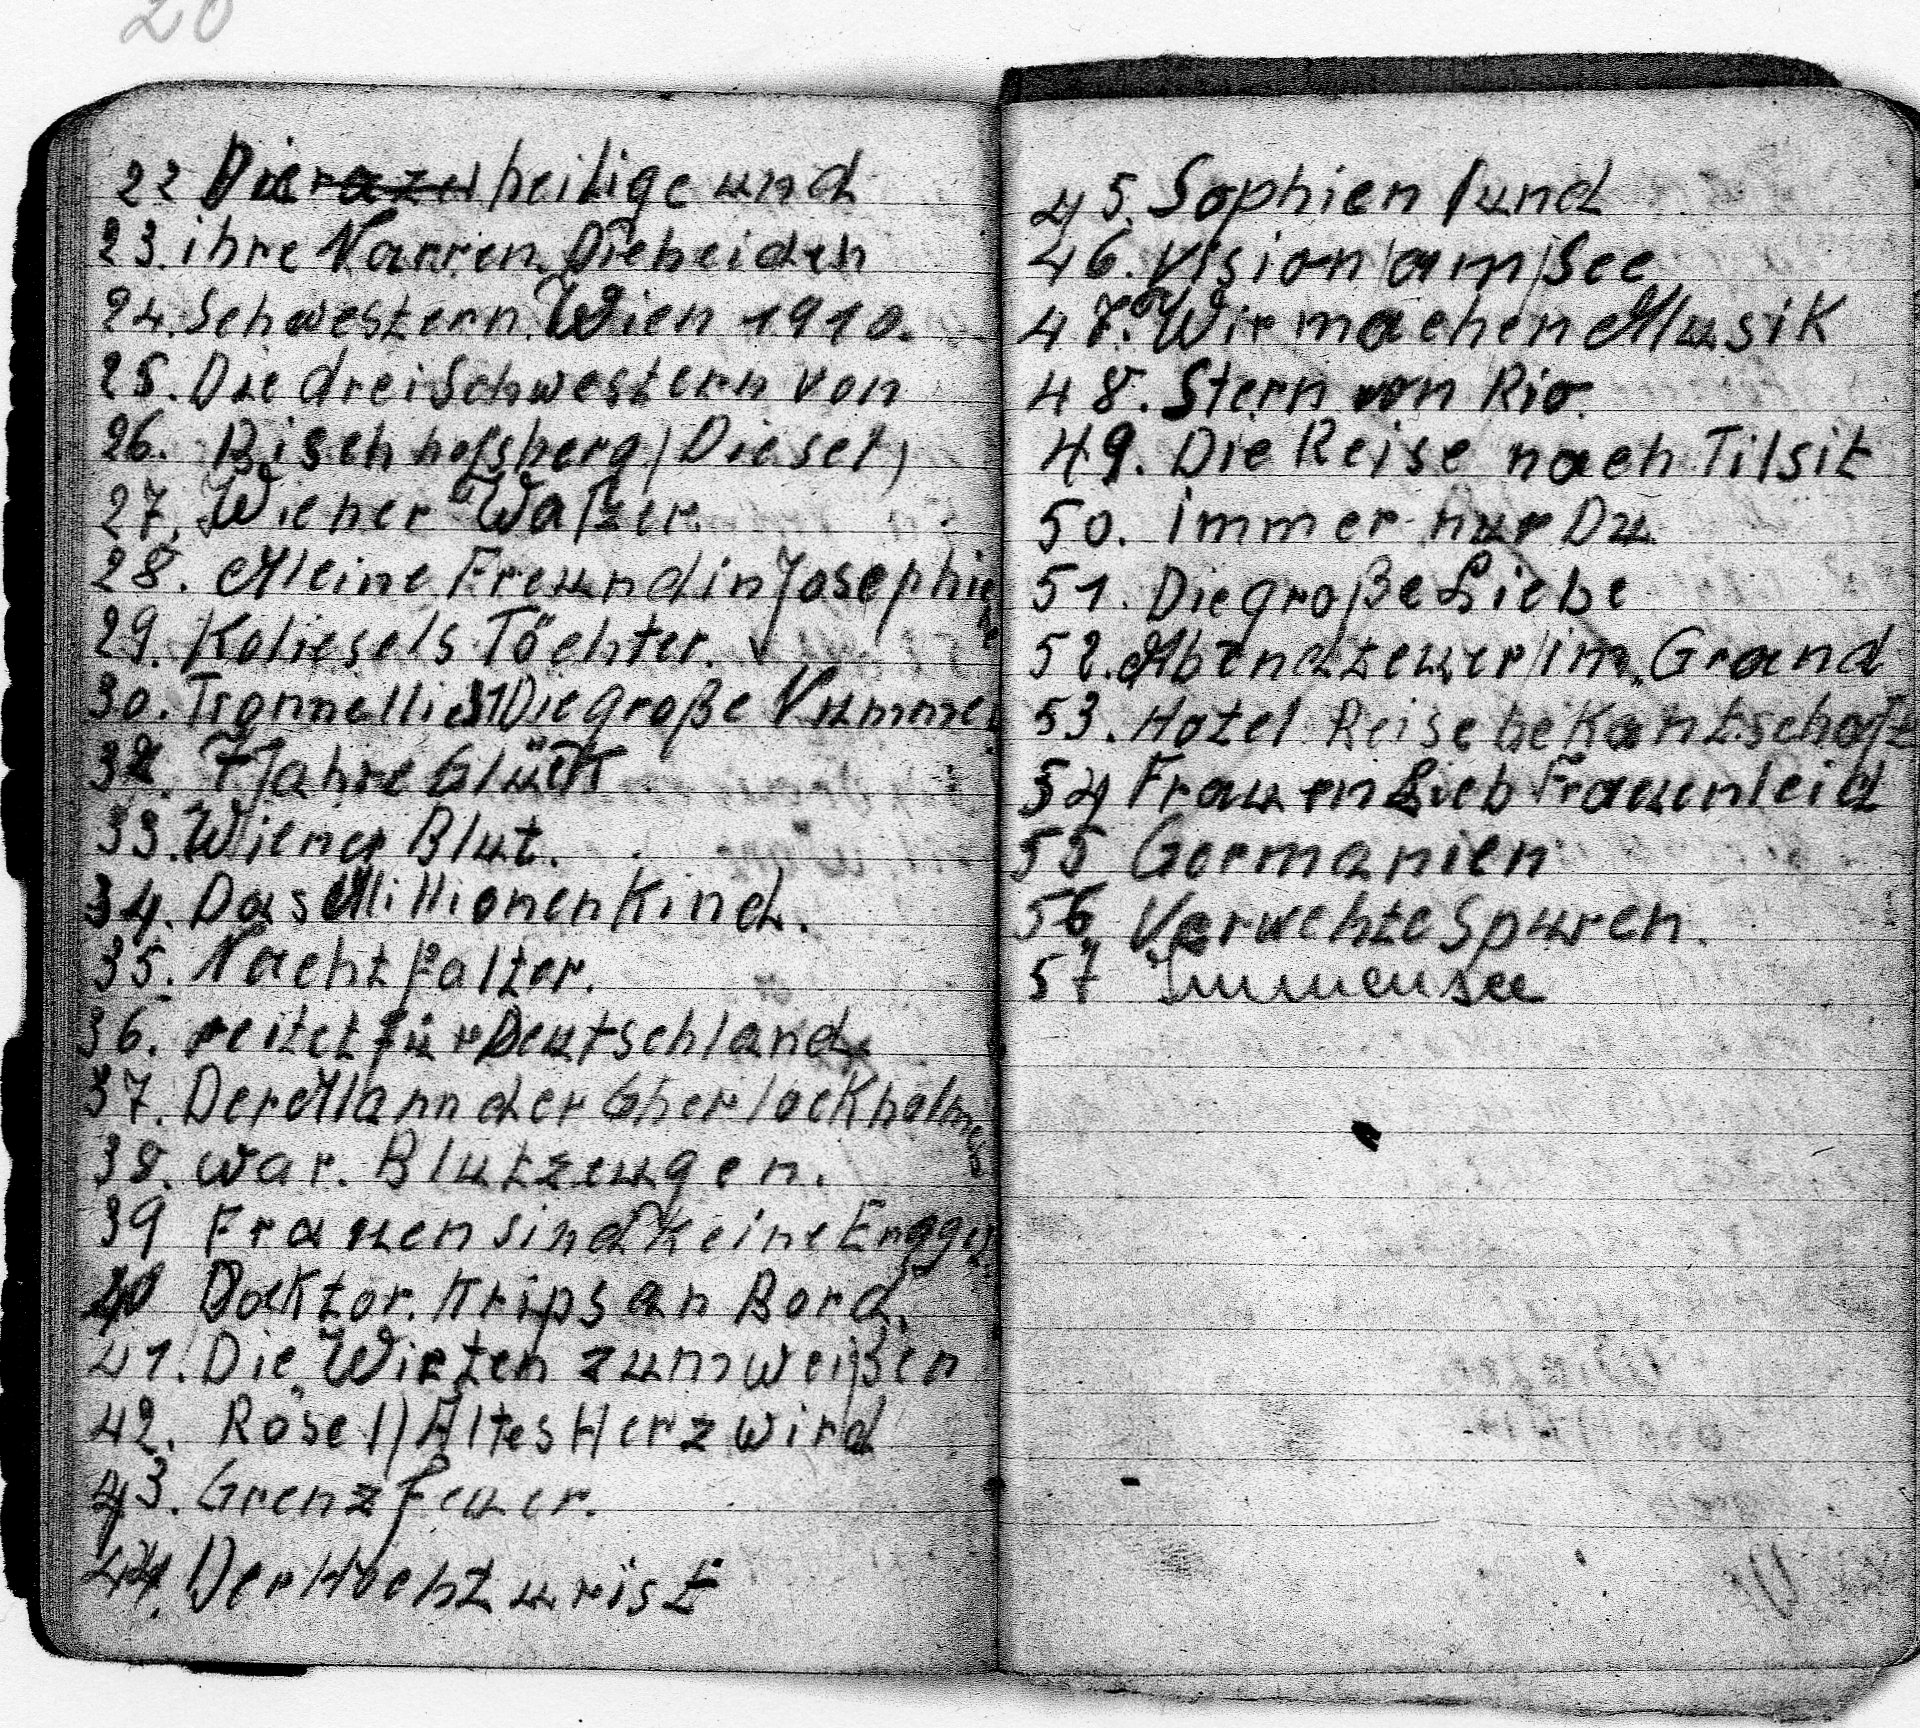 20
22 Die heilige und
23. ihre Narren. Die beiden
24. Schwestern. Wien 1910.
25. Die drei Schwestern von
26. Bischhofsberg / Diesel,
27. Wiener Walzer.
28. Meine Freundin Josephie
29. Koliesels Töchter. ne
30. Tsonnelli 31 Die große Nummer
32. 7 Jahre Glück
33. Wiener Blut.
34. Das Millionen Kind.
35. Nachtfalter.
36. reitet für Deutschland
37. Der Mann der Gherlockholmes
38. war. Blutzeugen.
39 Frauen sind keine Engges
40 Docktor. Krips an Bord.
41. Die Wirten zum weißen
42. Rösel / Altes Herz wird
43. Grenzfeuer.
44. Der Hochturist
45. Sophienlund
46. Vision am See
47. Wir machen Musik
48. Stern von Rio.
49. Die Reise nach Tilsit
50. immer nur Du.
51. Die große Liebe
52. Abendteuer im Grand
53. Hotel Reisebekantschaft
54 Frauen Lieb Frauenleid
55 Germanien
56 Verwehte Spuren.
57 Immensee